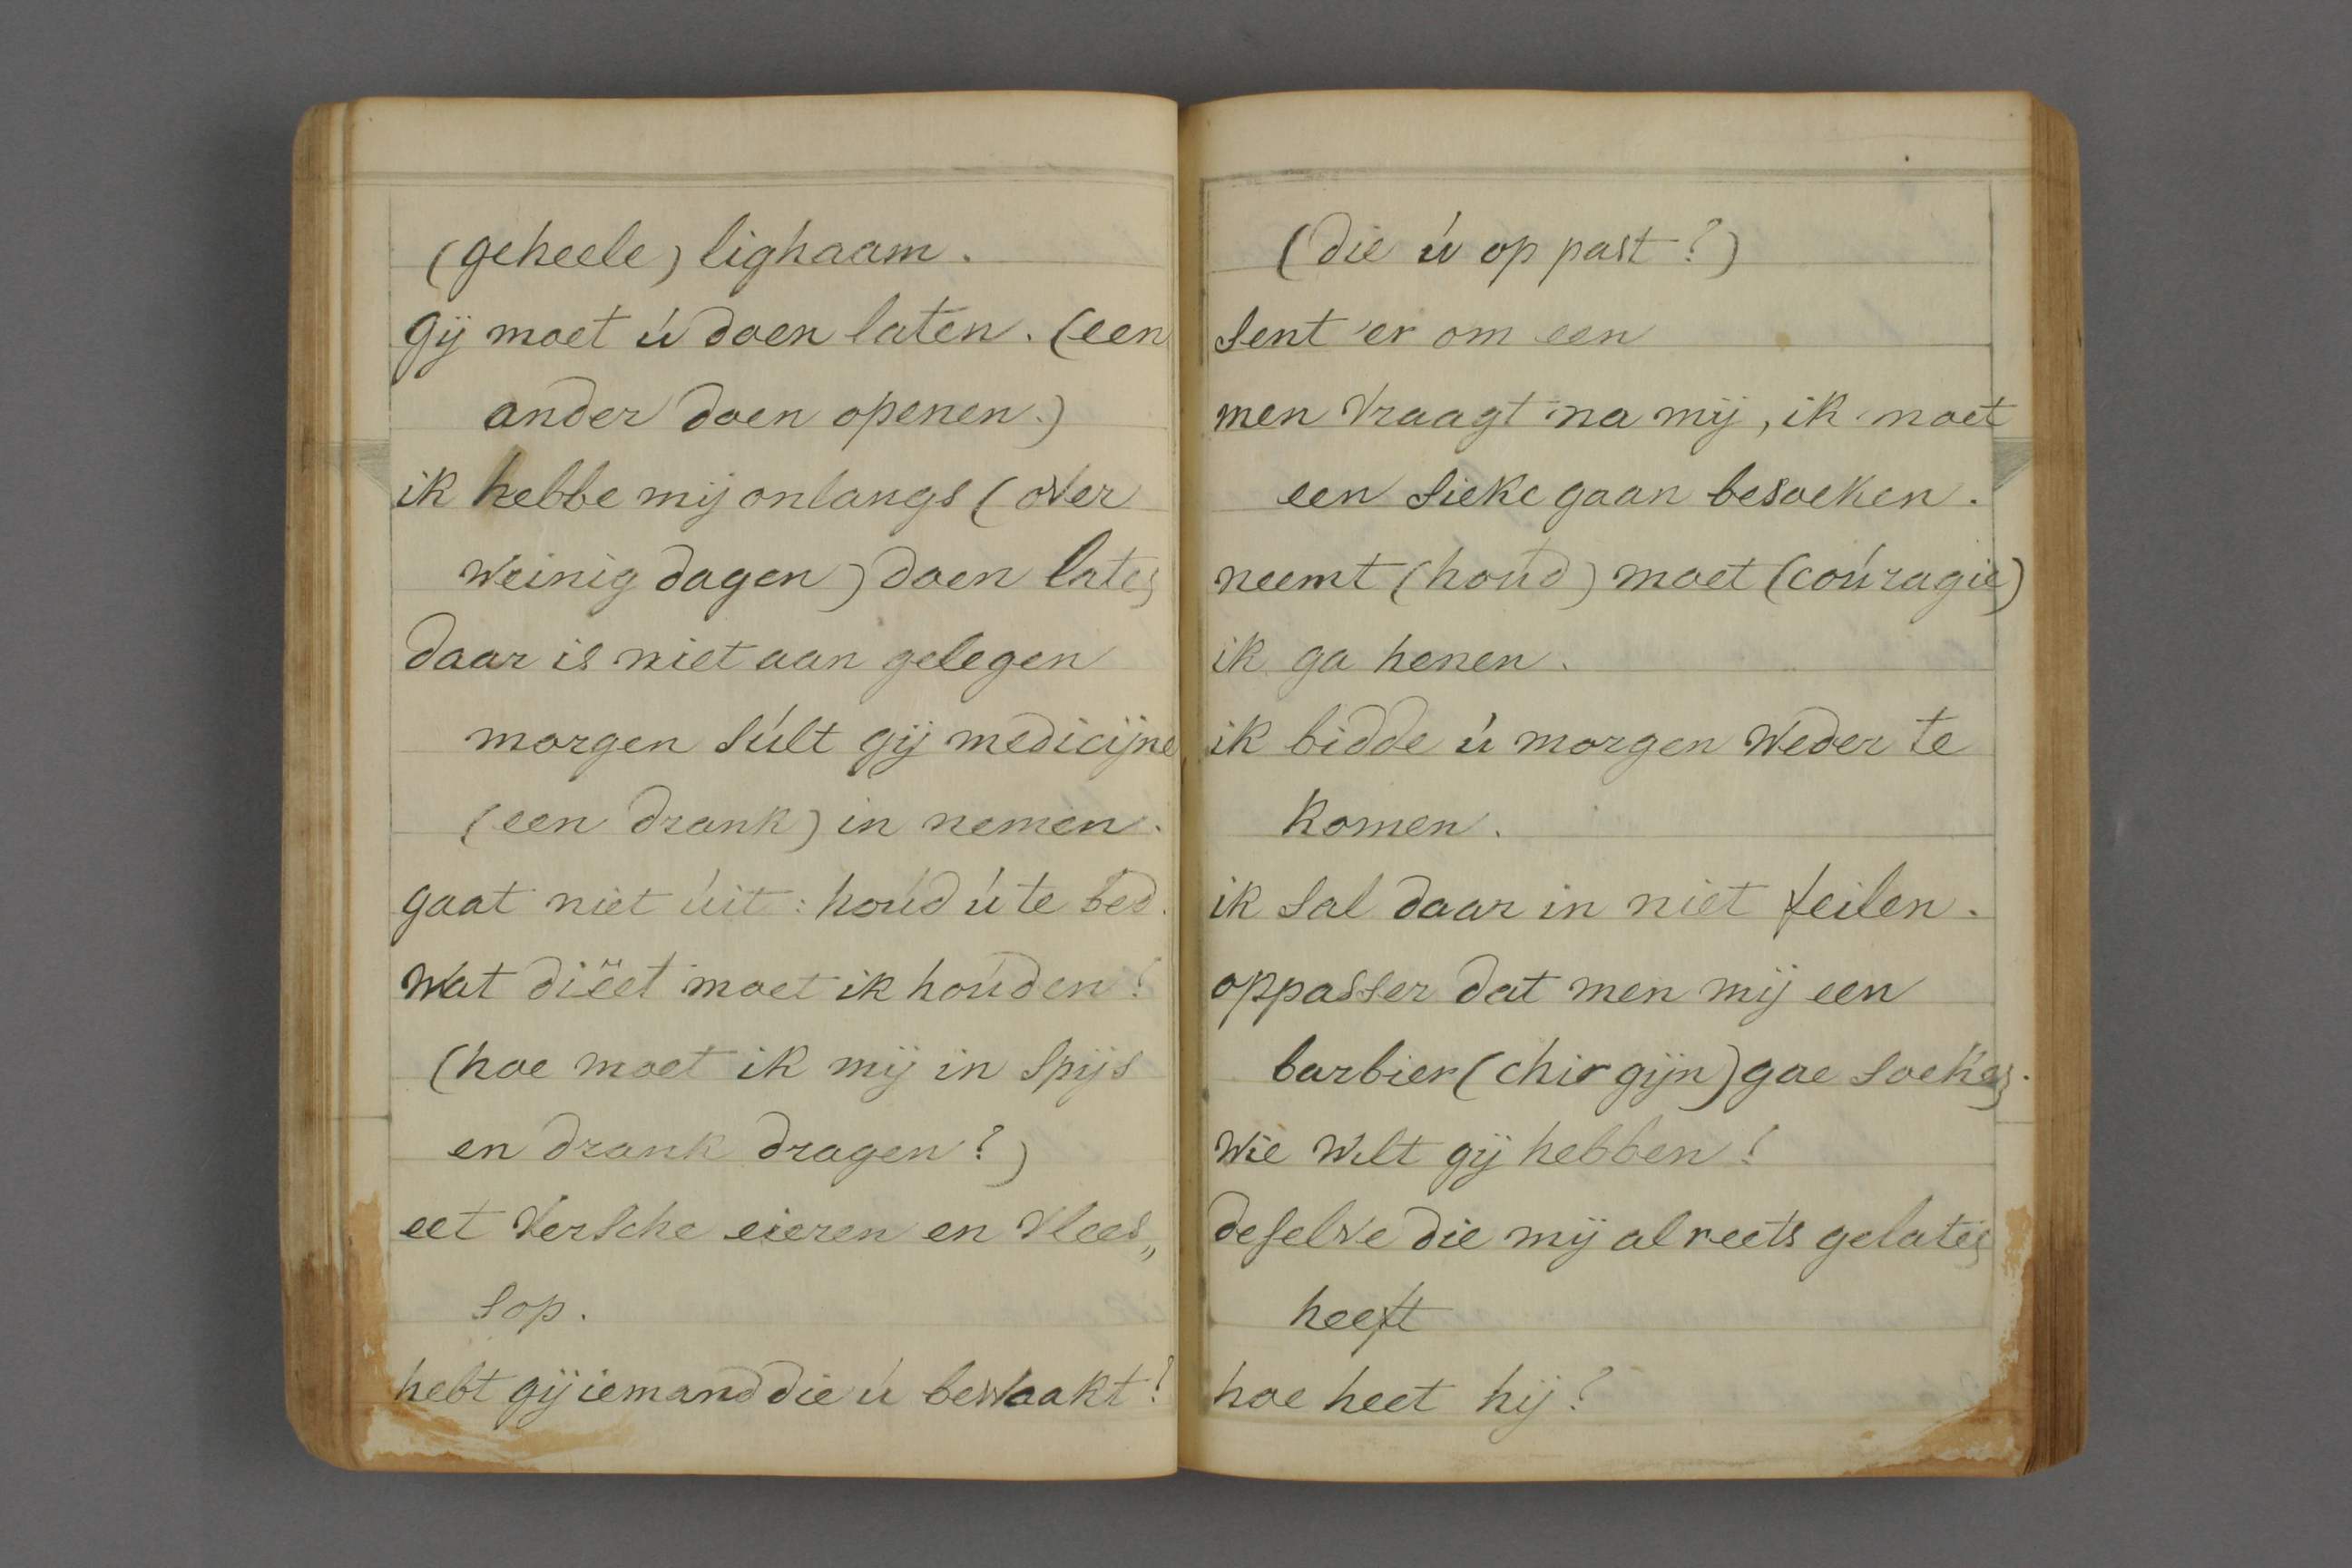 (geheele) lighaam.
Gij moet ú doen laten. (een
ander doen openen.)
ik hebbe mij onlangs (over
weinig dagen) doen laten
daar is niet aan gelegen
morgen súlt gij medicijne
(een drank) in nemen.
gaat niet úit: hoúd ú te bed.
Wat diëet moet ik hoúden?
(hoe moet ik mij in spijs
en drank dragen?)
eet versche eieren en vlees„
sop.
hebt gij iemand die ú bewaakt?
(die ú op past?)
sent 'er om een
men vraagt na mij, ik moet
een sieke gaan besoeken.
neemt (hoúd) moet (coúragie)
ik ga henen.
ik bidde ú morgen weder te
komen.
ik sal daar in niet feilen.
oppasser dat men mij een
barbier (chirgijn) gae soeken.
Wie wilt gij hebben?
deselve die mij alreets gelaten
heeft
hoe heet hij?